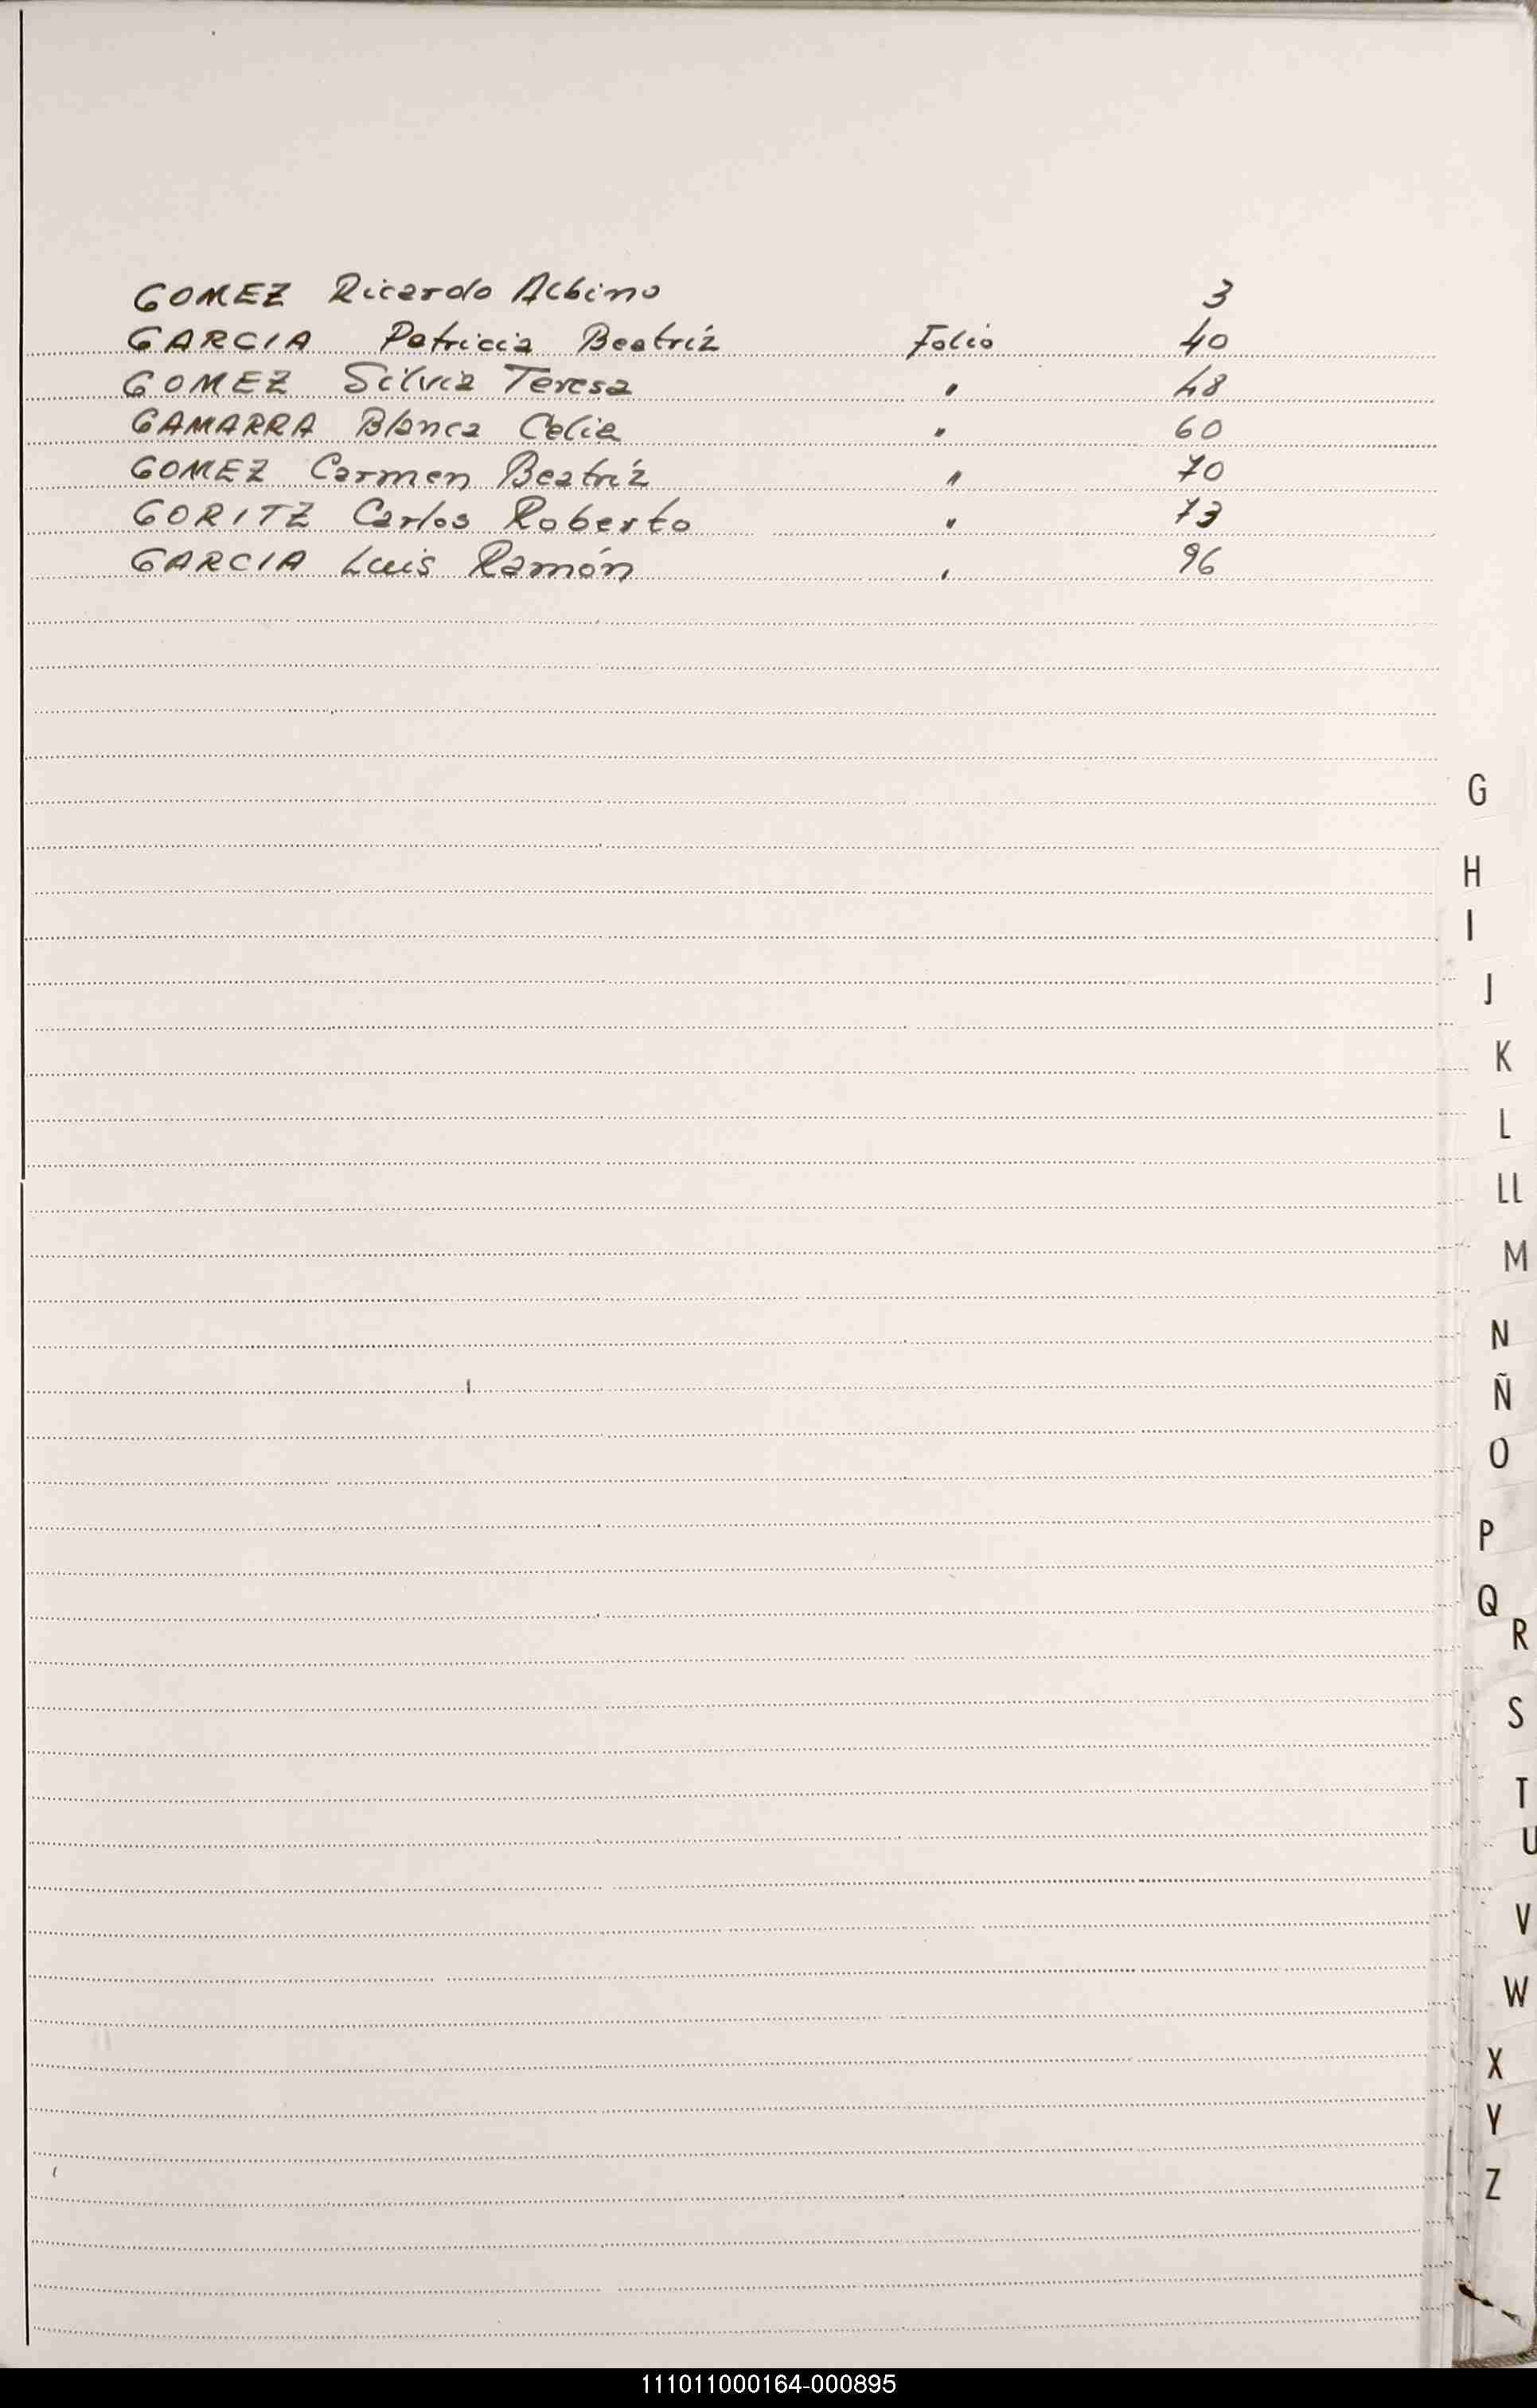 GOMEZ Ricardo Albino 3
GARCIA Patricia Beatríz Folio 40
GOMEZ Silvia Teresa " 48
GAMARRA Blanca Celia " 60
GOMEZ Carmen Beatríz " 70
GORITZ Carlos Roberto " 73
GARCIA Luis Ramón " 96
G
H
I
J
K
L
LL
M
N
Ñ
O
P
Q
R
S
T
U
V
W
X
Y
Z
111011000164-000895